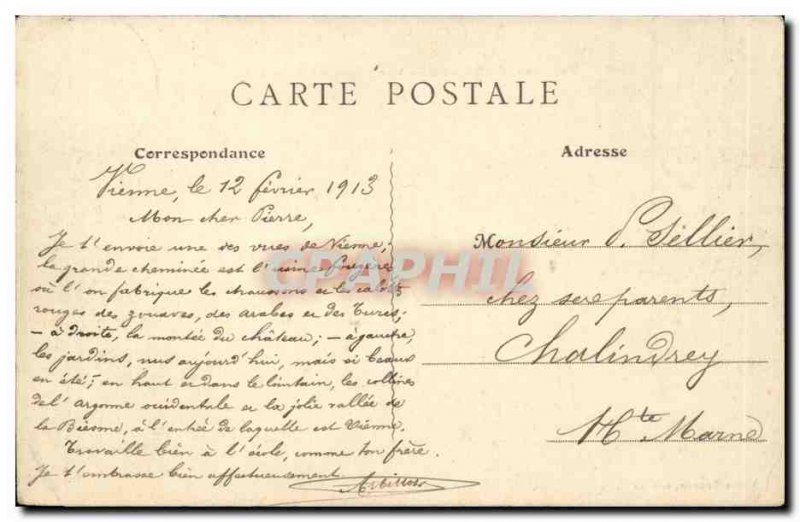 CARTE POSTALE
Correspondance
Adresse
Vienne, le 12 février 1913
Mon cher Pierre,
Je t'envoie une des vues de Vienne;
la grande cheminée est l'usine
où l'on fabrique les chaussons et les
rouges des zouaves, des arabes et des Turcs;
– à droite, la montée du château; – à gauche,
les jardins, nus aujourd'hui, mais si beaux
en été; en haut et dans le lointain, les collines
de l'Argonne occidentale et la jolie vallée de
la Biesme, à l'entrée de laquelle est Vienne.
Travaille bien à l'école, comme ton frère.
Je t'embrasse bien affectueusement
Monsieur P. Sellier,
chez ses parents,
Chalindrey
Hte Marne
CPAPHIL